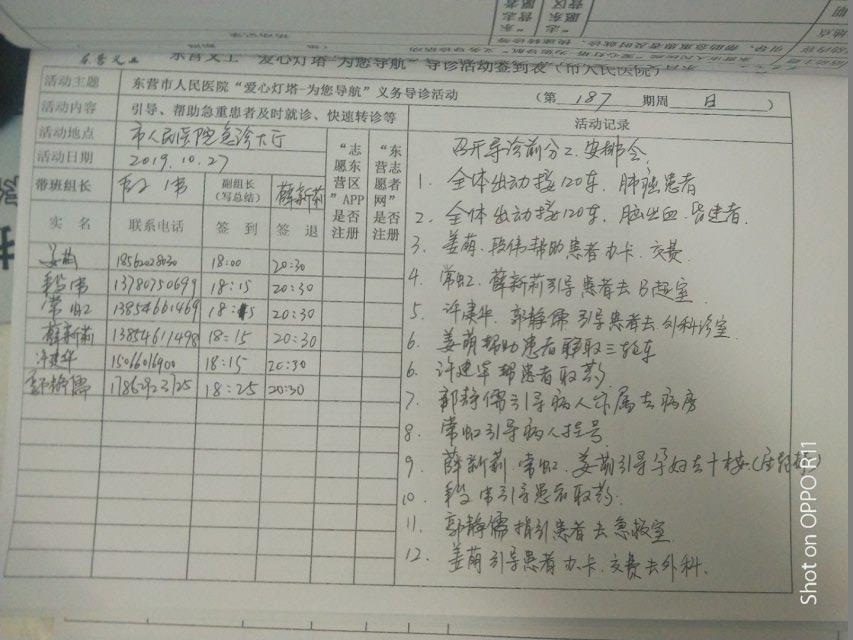 东营义工 "爱心灯塔-为您导航" 导诊活动签到表(市人民医院)
活动主题 东营市人民医院"爱心灯塔-为您导航"义务导诊活动 (第 187 期周 日 )
活动内容 引导、帮助急重患者及时就诊、快速转诊等 活动记录
活动地点 市人民医院急诊大厅
活动日期 2019.10.27
带班组长 副组长(写总结) 薛新莉
"志愿东营区"APP是否注册
"东营志愿者网"是否注册
实名 联系电话 签到 签退
姜萌 18562028030 18:00 20:30
段伟 13780750699 18:15 20:30
常虹 13854661469 18:15 20:30
薛新莉 13854611498 18:15 20:30
许建华 15066016900 18:15 20:30
郭静儒 17862923125 18:25 20:30
召开导诊前分工安排会
1. 全体出动接120车.肺脑患者
2. 全体出动接120车.脑出血.患者.
3. 姜萌.段伟帮助患者办卡.交费
4. 常虹.薛新莉引导患者去B超室
5. 许建华.郭静儒引导患者去外科诊室
6. 姜萌帮助患者取三轮车
6. 许建华帮患者取药
7. 郭静儒引导病人家属去病房
8. 常虹引导病人挂号
9. 薛新莉.常虹.姜萌引导孕妇去十楼
10. 段伟引导患者取药.
11. 郭静儒指引患者去急救室
12. 姜萌引导患者办卡.交费去外科.
Shot on OPPO R11